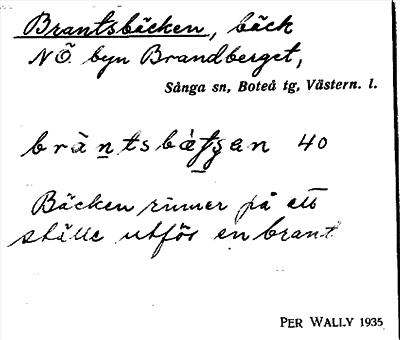 Brantsbäcken, bäck
NÖ. byn Brandberget,
Sånga sn, Boteå tg, Västern. l.
40
Bäcken rinner på ett
ställe utför en brant
PER WALLY 1935